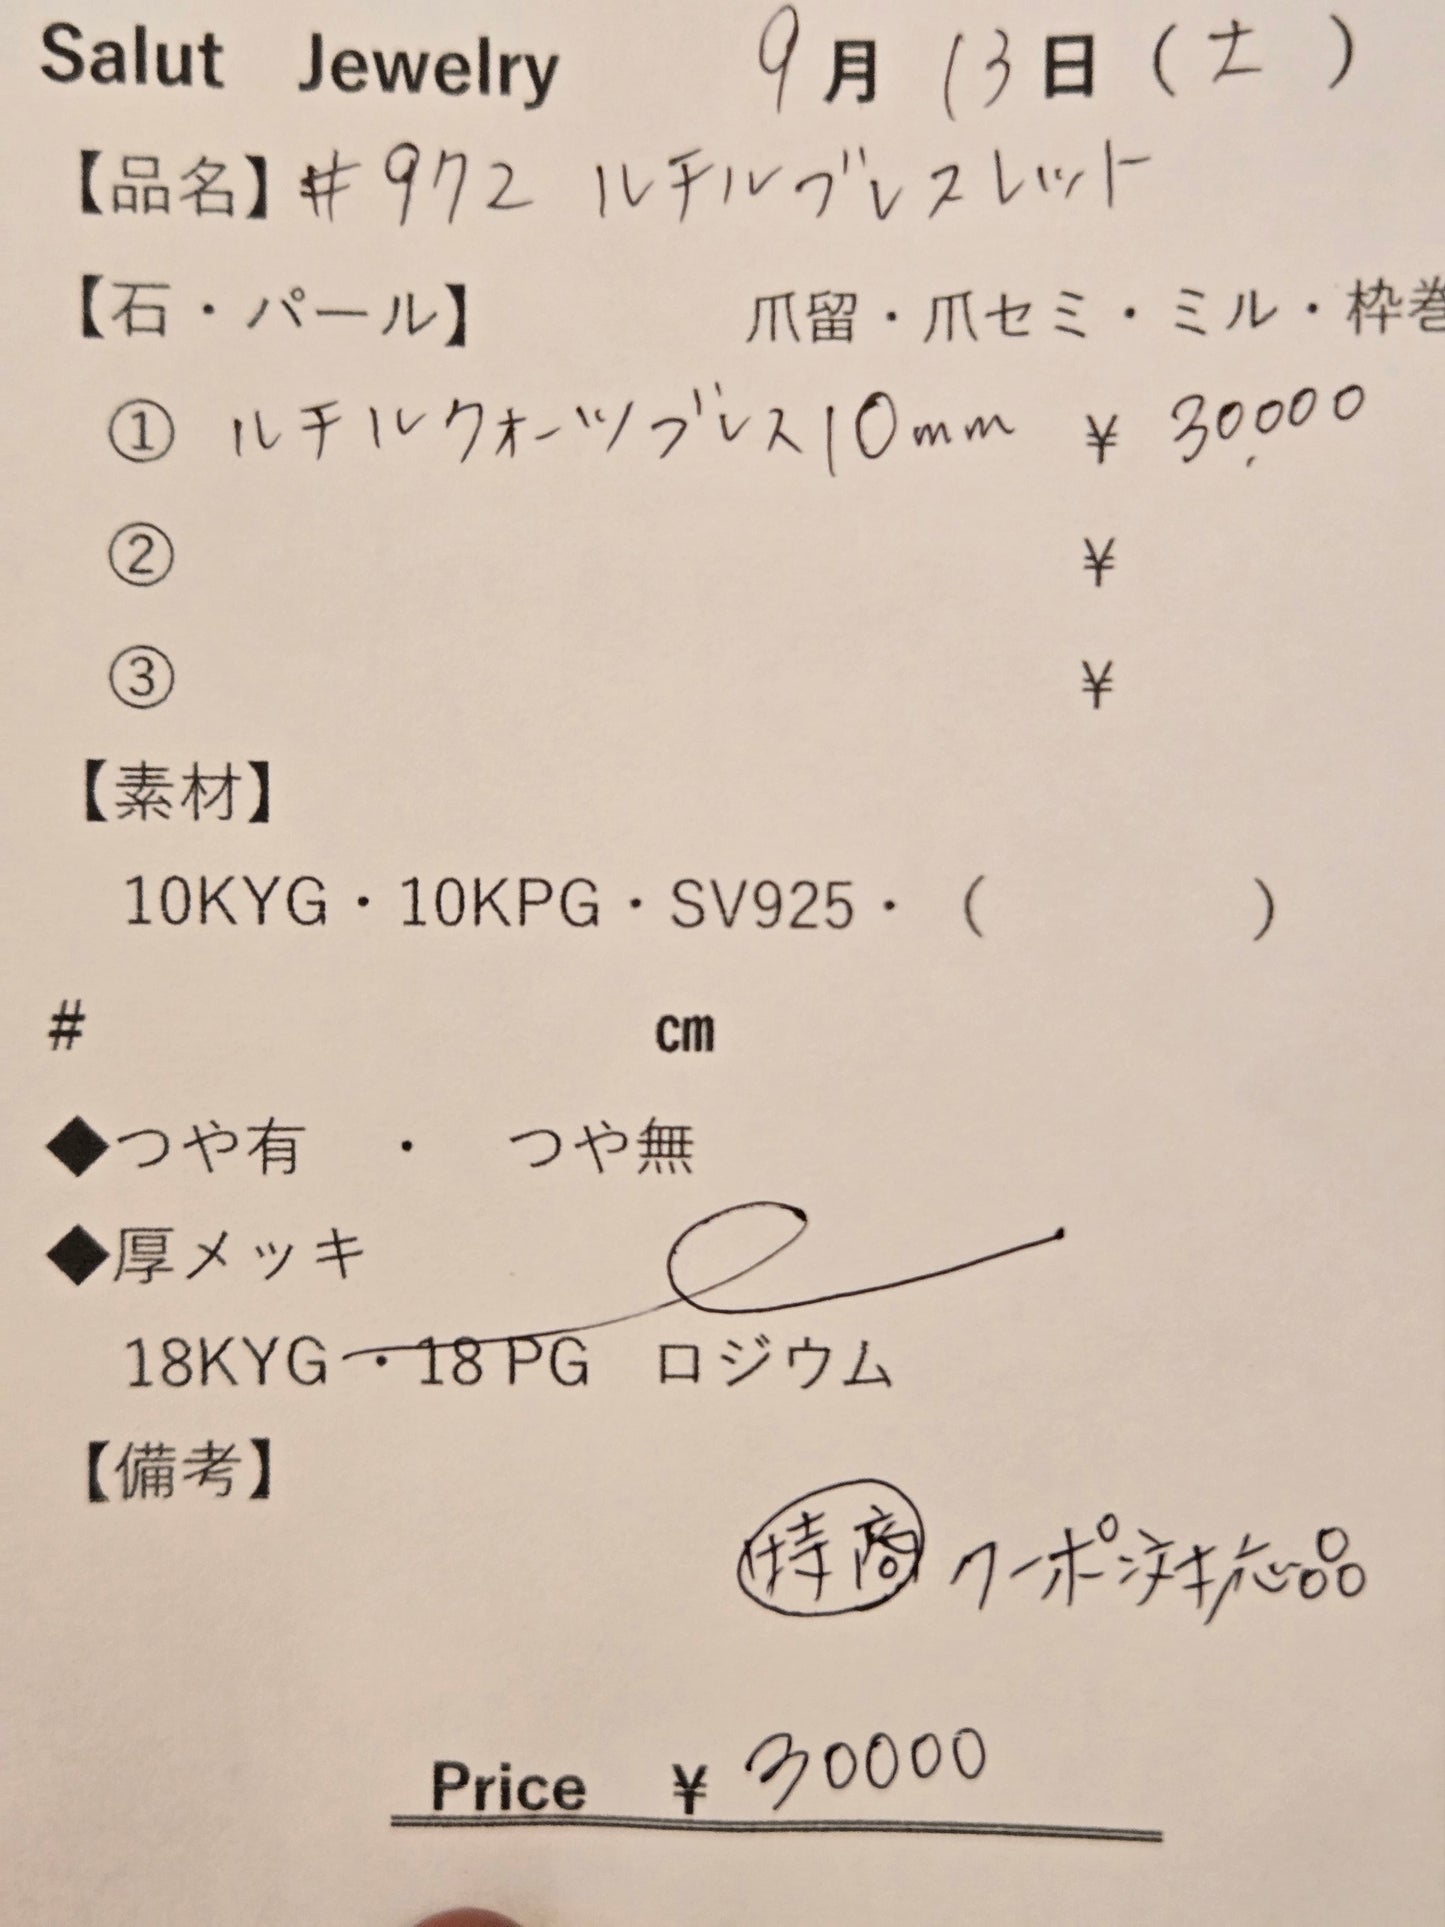 Salut Jewelry 9月13日(土)
【品名】#972 ルチルブレスレット
【石・パール】 爪留・爪セミ・ミル・枠巻
① ルチルクォーツブレス10mm ¥30,000
② ¥
③ ¥
【素材】
10KYG・10KPG・SV925・( )
# cm
◆つや有 ・ つや無
◆厚メッキ
18KYG・18PG ロジウム
【備考】
特商 クーポン対応品
Price ¥30000